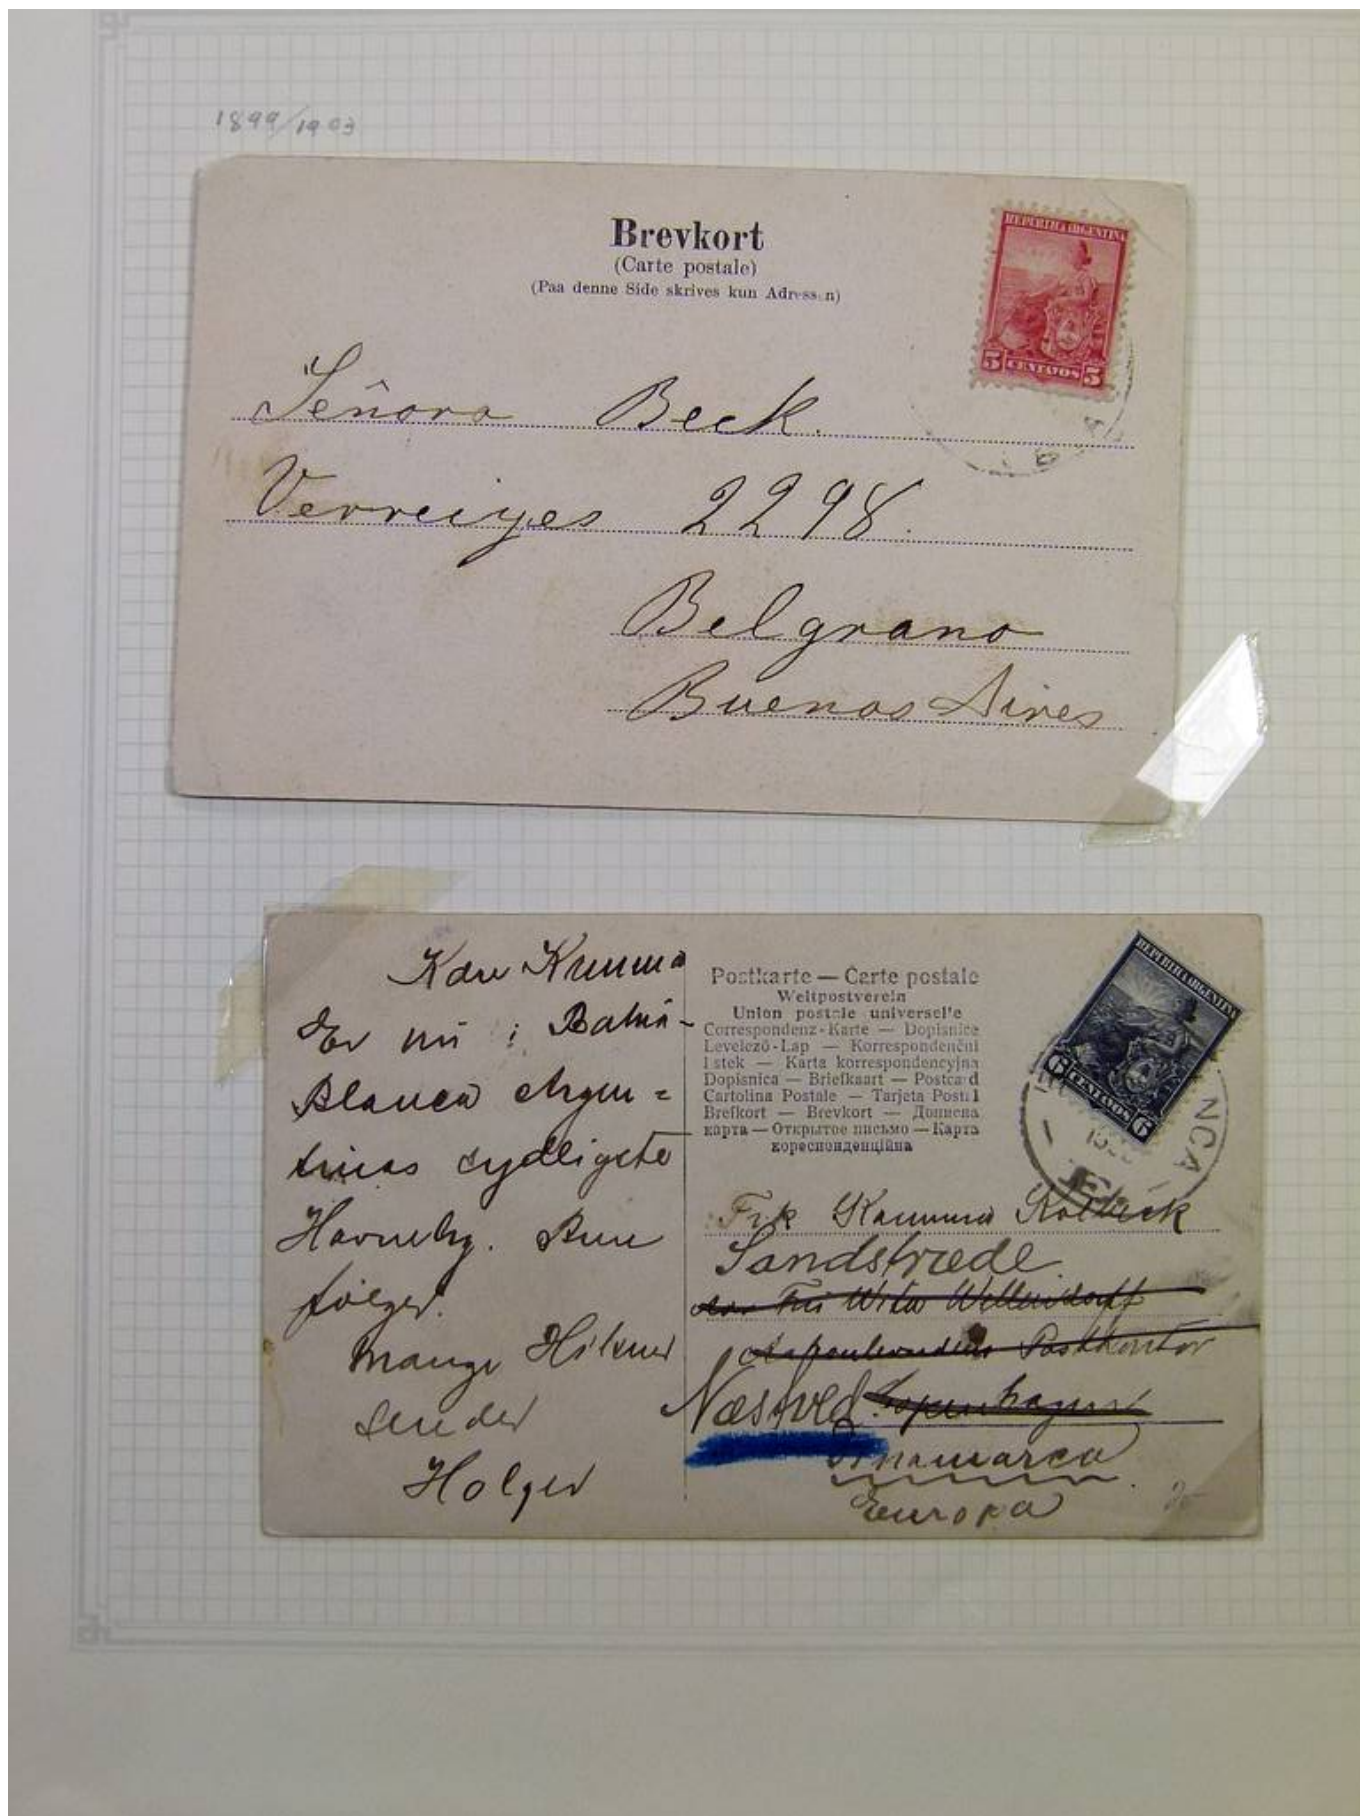 1899/1903
Brevkort
(Carte postale)
(Paa denne Side skrives kun Adressen)
REPUBLICA ARGENTINA
5 CENTAVOS 5
Señora Beck.
Verreiyes 2298.
Belgrano
Buenos Aires
Er nu i Bahia-
Blanca Argen=
tinas sydligste
Havneby. Brev
følger.
Mange Hilsner
sender
Holger
Postkarte — Carte postale
Weltpostverein
Union postale universelle
Correspondenz-Karte — Dopisnice
Levelező-Lap — Korrespondenční
lístek — Karta korrespondencyjna
Dopisnica — Briefkaart — Postcard
Cartolina Postale — Tarjeta Postal
Brefkort — Brevkort — Дописна
карта — Открытое письмо — Карта
кореспонденційна
REPUBLICA ARGENTINA
6 CENTAVOS 6
NCA
Frk
Sandstræde
Postkontor
Næstved Kopenhagen
Dinamarca
Europa